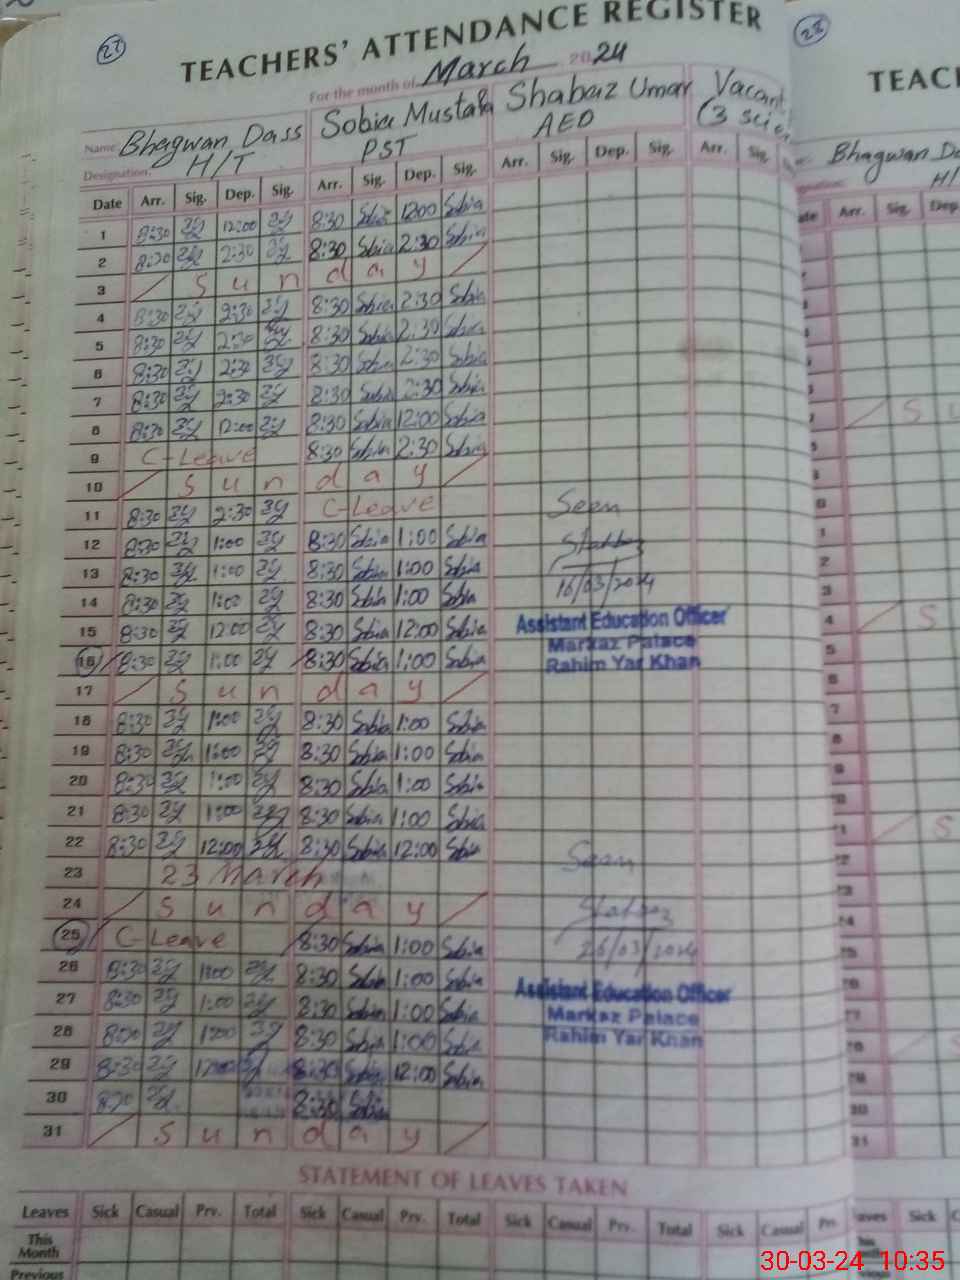 27
TEACHERS' ATTENDANCE REGISTER
For the month of March 2024
Name Bhagwan Dass Sobia Mustafa Shabaz Umar Vacant
Designation. H/T PST AEO (3 scie
Date Arr. Sig. Dep. Sig. Arr. Sig. Dep. Sig. Arr. Sig. Dep. Sig. Arr. Sig.
1 8:30 12:00 8:30 Sobia 12:00 Sobia
2 8:30 2:30 8:30 Sobia 2:30 Sobia
3 Sunday
4 8:30 2:30 8:30 Sobia 2:30 Sobia
5 8:30 2:30 8:30 Sobia 2:30 Sobia
6 8:30 2:30 8:30 Sobia 2:30 Sobia
7 8:30 2:30 8:30 Sobia 2:30 Sobia
8 8:30 12:00 8:30 Sobia 12:00 Sobia
9 C-Leave 8:30 Sobia 2:30 Sobia
10 Sunday
11 8:30 2:30 C-Leave Seen
12 8:30 1:00 8:30 Sobia 1:00 Sobia Shahbaz
13 8:30 1:00 8:30 Sobia 1:00 Sobia 16/03/2024
14 8:30 1:00 8:30 Sobia 1:00 Sobia
15 8:30 12:00 8:30 Sobia 12:00 Sobia Assistant Education Officer
Markaz Palace
16 8:30 1:00 8:30 Sobia 1:00 Sobia Rahim Yar Khan
17 Sunday
18 8:30 1:00 8:30 Sobia 1:00 Sobia
19 8:30 1:00 8:30 Sobia 1:00 Sobia
20 8:30 1:00 8:30 Sobia 1:00 Sobia
21 8:30 1:00 8:30 Sobia 1:00 Sobia
22 8:30 12:00 8:30 Sobia 12:00 Sobia Seen
23 23 March
24 Sunday Shahbaz
25 C-Leave 8:30 Sobia 1:00 Sobia 26/03/2024
26 8:30 1:00 8:30 Sobia 1:00 Sobia Assistant Education Officer
27 8:30 1:00 8:30 Sobia 1:00 Sobia Markaz Palace
28 8:30 1:00 8:30 Sobia 1:00 Sobia Rahim Yar Khan
29 8:30 12:00 8:30 Sobia 12:00 Sobia
30 8:30 8:30 Sobia
31 Sunday
STATEMENT OF LEAVES TAKEN
Leaves Sick Casual Prv. Total Sick Casual Prv. Total Sick Casual Prv. Total Sick Casual Prv.
This Month
Previous
28
TEAC
Bhagwan Da
H/
Arr. Sig. Dep
30-03-24 10:35